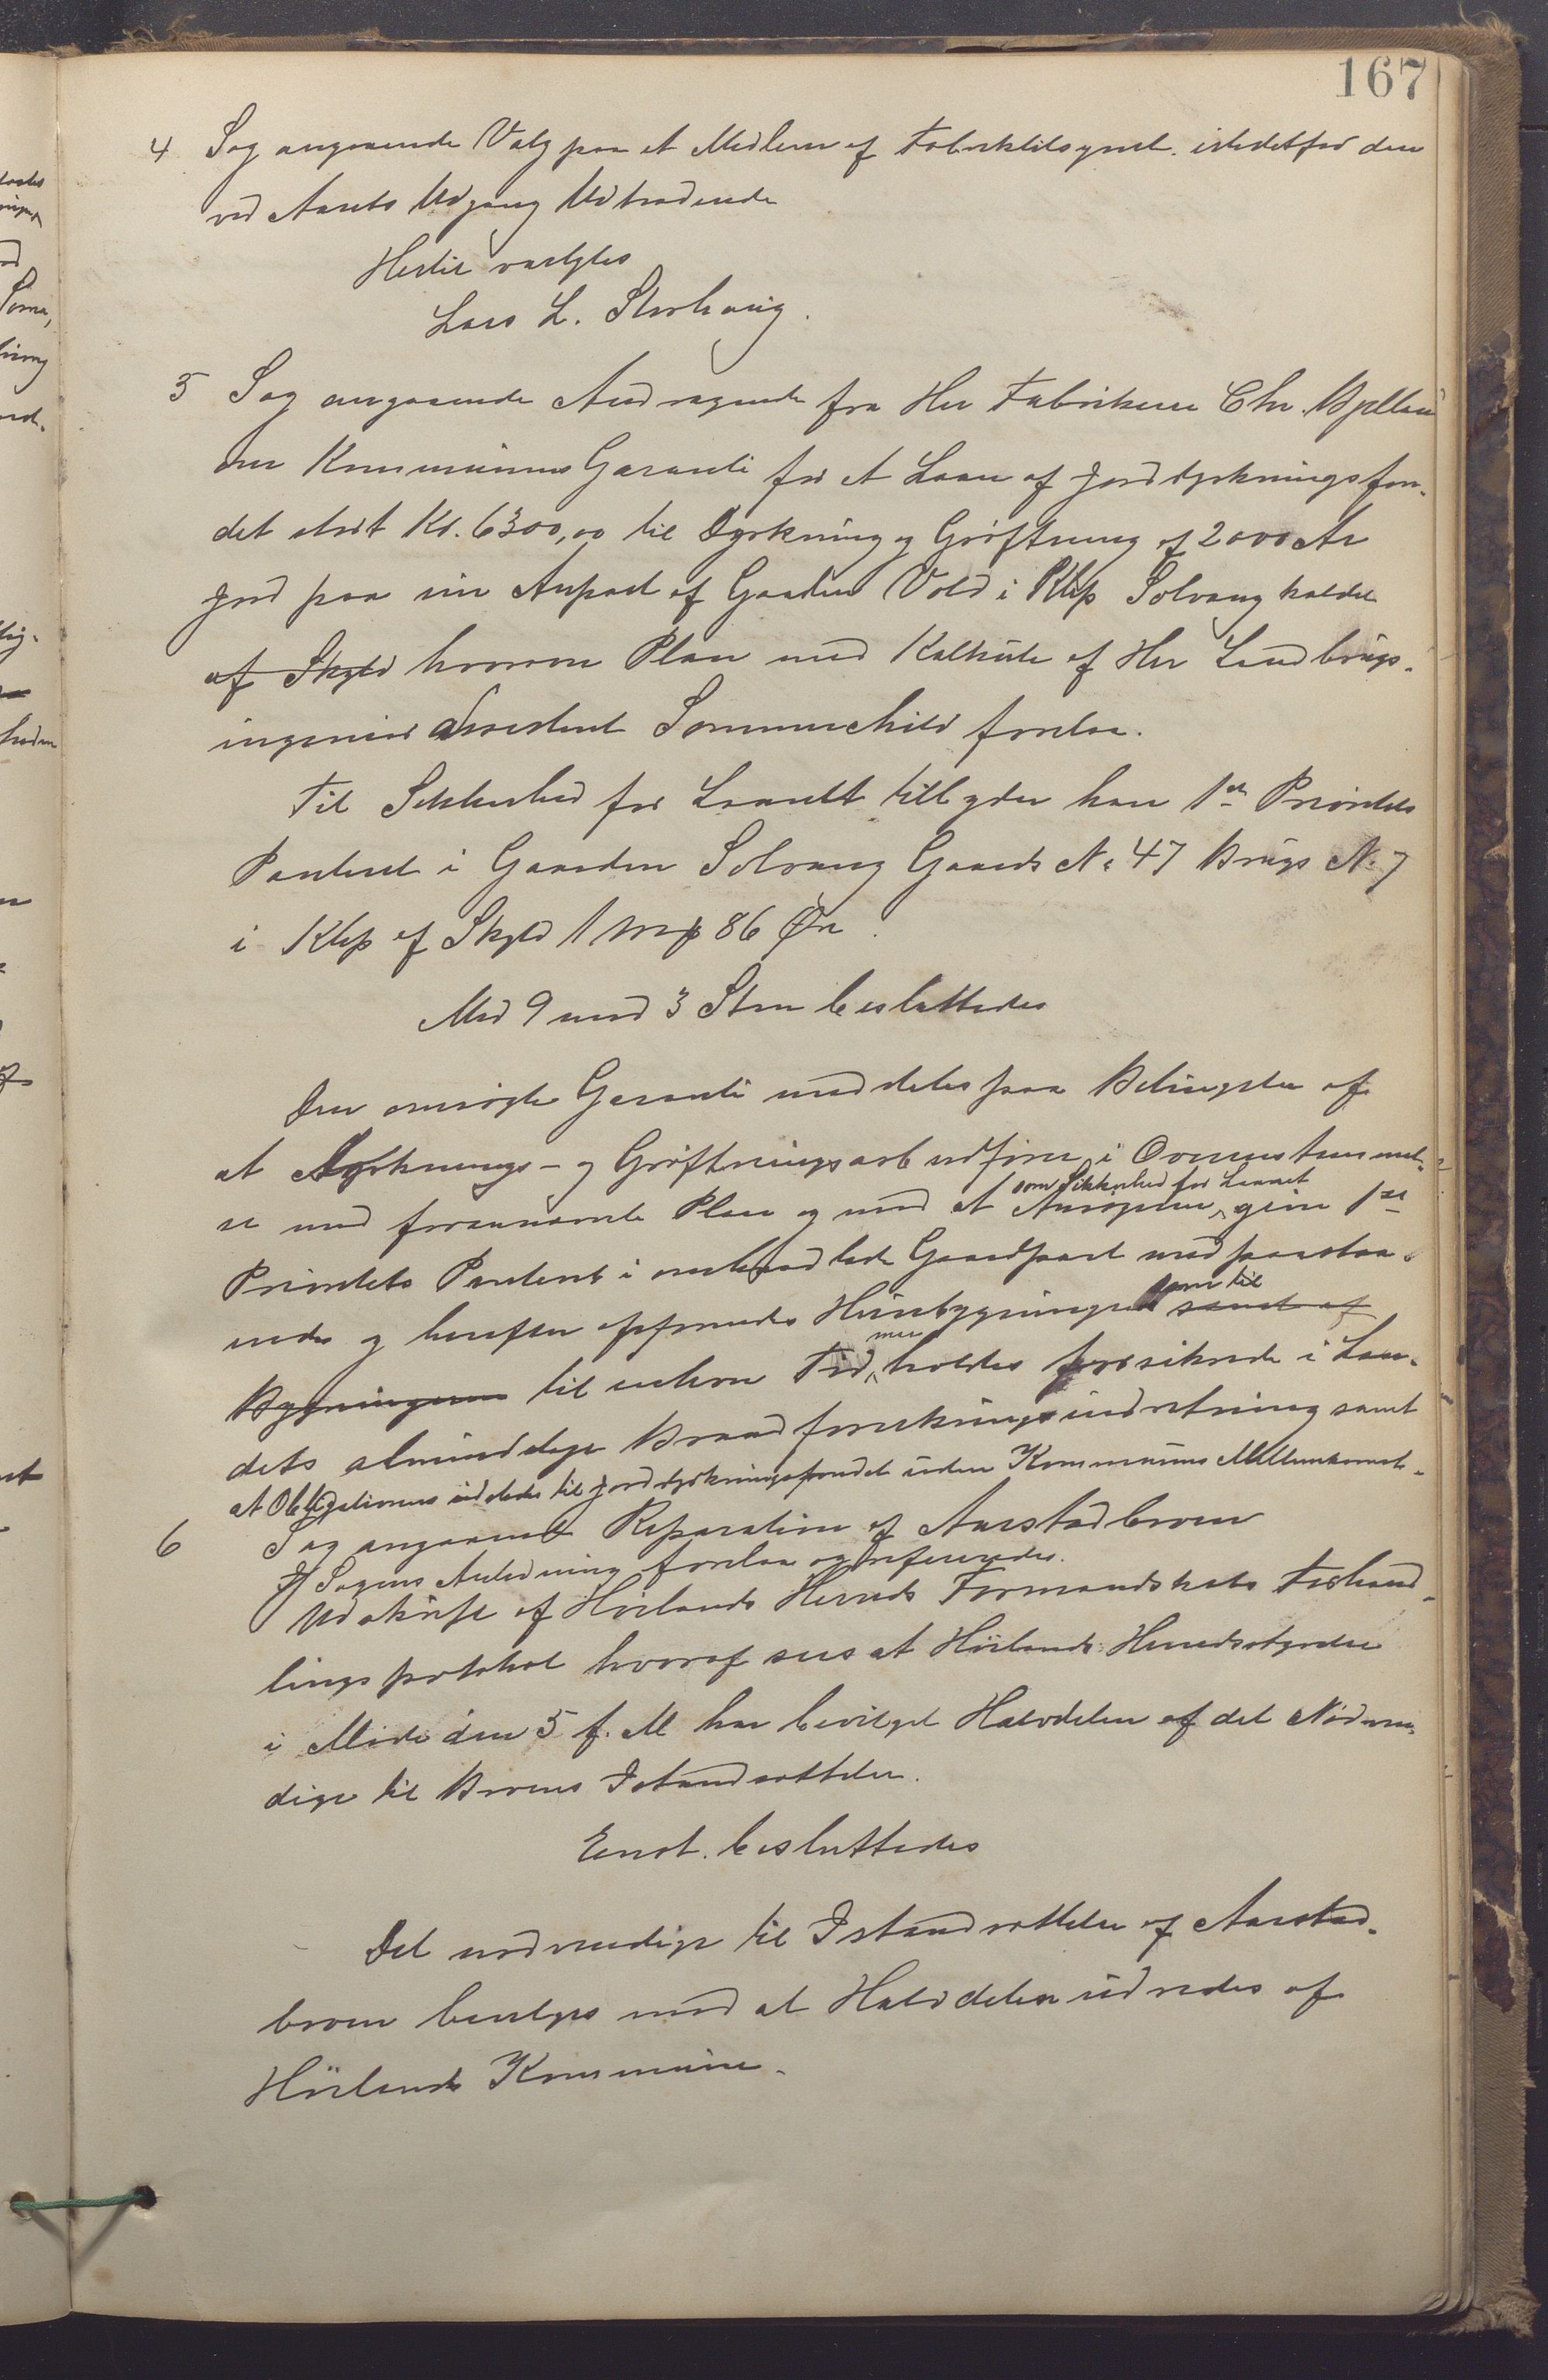 167
4 Sag angaaende Valg paa et Medlem af Fabriktilsynet istedetfor den
ved Aarets Udgang Udtrædende
Hertil valgtes
Lars L. Storhaug.
5 Sag angaaende Andragende fra Her Fabrikeier Chr. Bjelland
om Kommunens Garanti for et Laan af Jorddyrkningsfon-
det stort Kr. 6300,00 til Dyrkning og Grøftning af 2000 Ar
Jord paa sin Anpart af Gaarden Vold i Klep Solvang kaldet
af Skyld hvorom Plan med Kalkule af Her Landbrugs-
ingeniør Assistent Sommerschild forelaa.
Til Sikkerhed for Laanet tilbyder han 1ste Prioritets
Panteret i Gaarden Solvang Gaards No 47 Brugs No 7
i Klep af Skyld 1 mrk 86 Øre.
Med 9 mod 3 Stem besluttedes
Den ansøgte Garanti meddeles paa Betingelse af
at Dyrknings- og Grøftningsarb udføres i Overensstemmel-
som Sikkerhed for Laanet
se med forannævnte Plan og mod at Ansøgeren giver 1ste
Prioritets Panteret i omhandlede Gaardpart med paastaa-
ende og herefter opførende Husebygninger som til
samt af
Bygningerne til enhver Tid maa holdes forsikrede i Lan-
dets almindelige Brandforsikringsindretning samt
at Obligationen udstedes til Jorddyrkningsfondet uden Kommunens Mellemkomst.
6 Sag angaaende Reparation af Aarstadbroen
I Sagens Anledning forelaa og refereredes.
Udskrift af Høilands Herreds Formandskabs Forhand-
lingsprotokol hvoraf sees at Høilands Herredsstyrelse
i Møde den 5 f. M har bevilget Halvdelen af det Nødven-
dige til Broens Istandsættelse.
Enst. besluttedes
Det nødvendige til Istandsættelse af Aarstad-
broen bevilges mod at Halvdelen udredes af
Høilands Kommune.